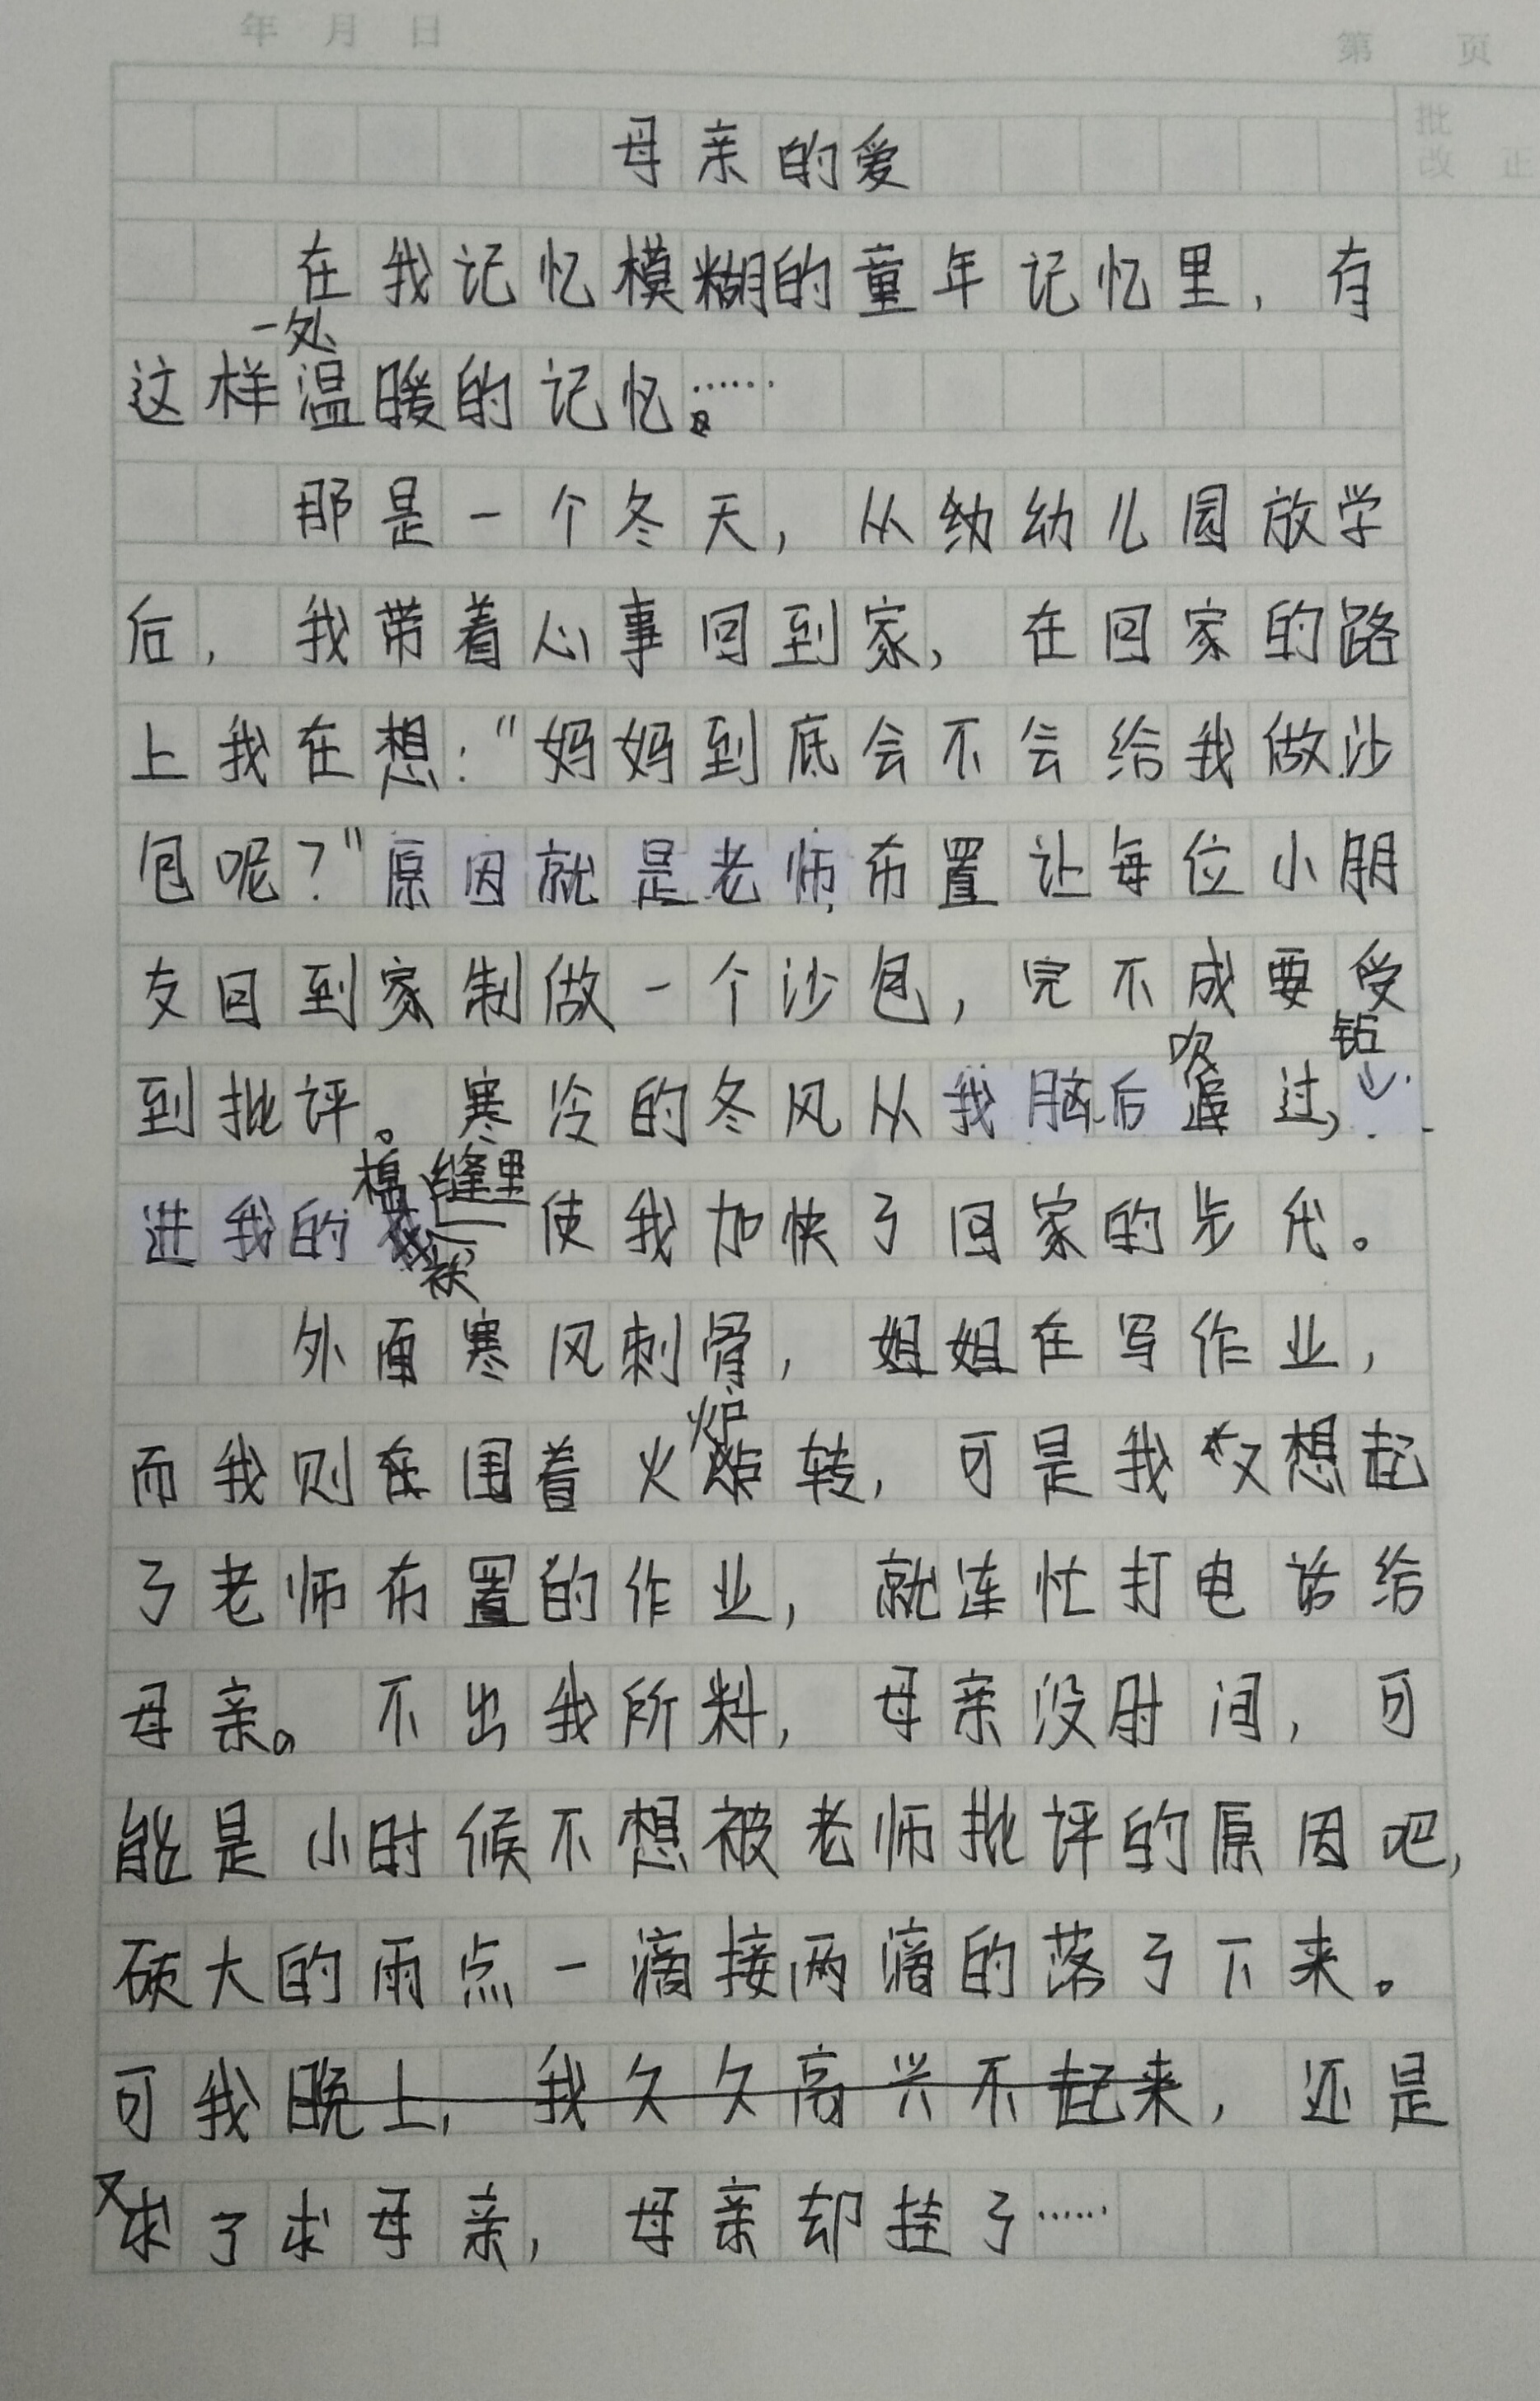 年 月 日
第 页
批
改 正
母亲的爱
在我记忆模糊的童年记忆里，有
一处
这样温暖的记忆……
那是一个冬天，从幼幼儿园放学
后，我带着心事回到家，在回家的路
上我在想："妈妈到底会不会给我做沙
包呢？"原因就是老师布置让每位小朋
友回到家制做一个沙包，完不成要受
吹 钻
到批评。寒冷的冬风从我脑后 过，
棉 缝里
进我的 袄 使我加快了回家的步伐。
外面寒风刺骨，姐姐在写作业，
炉
而我则在围着火 转，可是我又想起
了老师布置的作业，就连忙打电话给
母亲。不出我所料，母亲没时间，可
能是小时候不想被老师批评的原因吧，
硕大的雨点一滴接两滴的落了下来。
可我晚上，我久久高兴不起来，还是
又
求了求母亲，母亲却挂了……